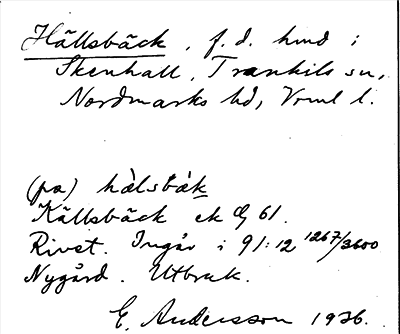 Hällsbäck, f.d. hmd i
Skenhall, Trankils sn,
Nordmarks hd, Vrml l.
(pa) hàlsbàk
Källsbäck ek 61.
Rivet. Ingår i 91:12 1267/3600
Nygård. Utbruk.
E. Andersson 1936.